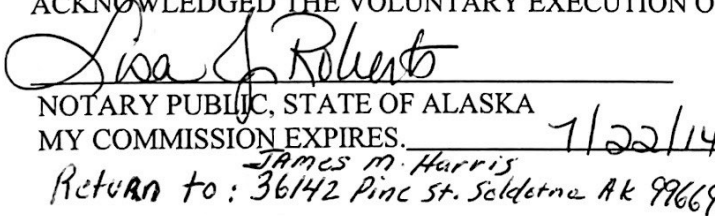 ACKNOWLEDGED THE VOLUNTARY EXECUTION O
Lisa J Roberts
NOTARY PUBLIC, STATE OF ALASKA
MY COMMISSION EXPIRES. 7/22/14
JAmes M. Harris
Return to: 36142 Pine St. Soldotna AK 99669